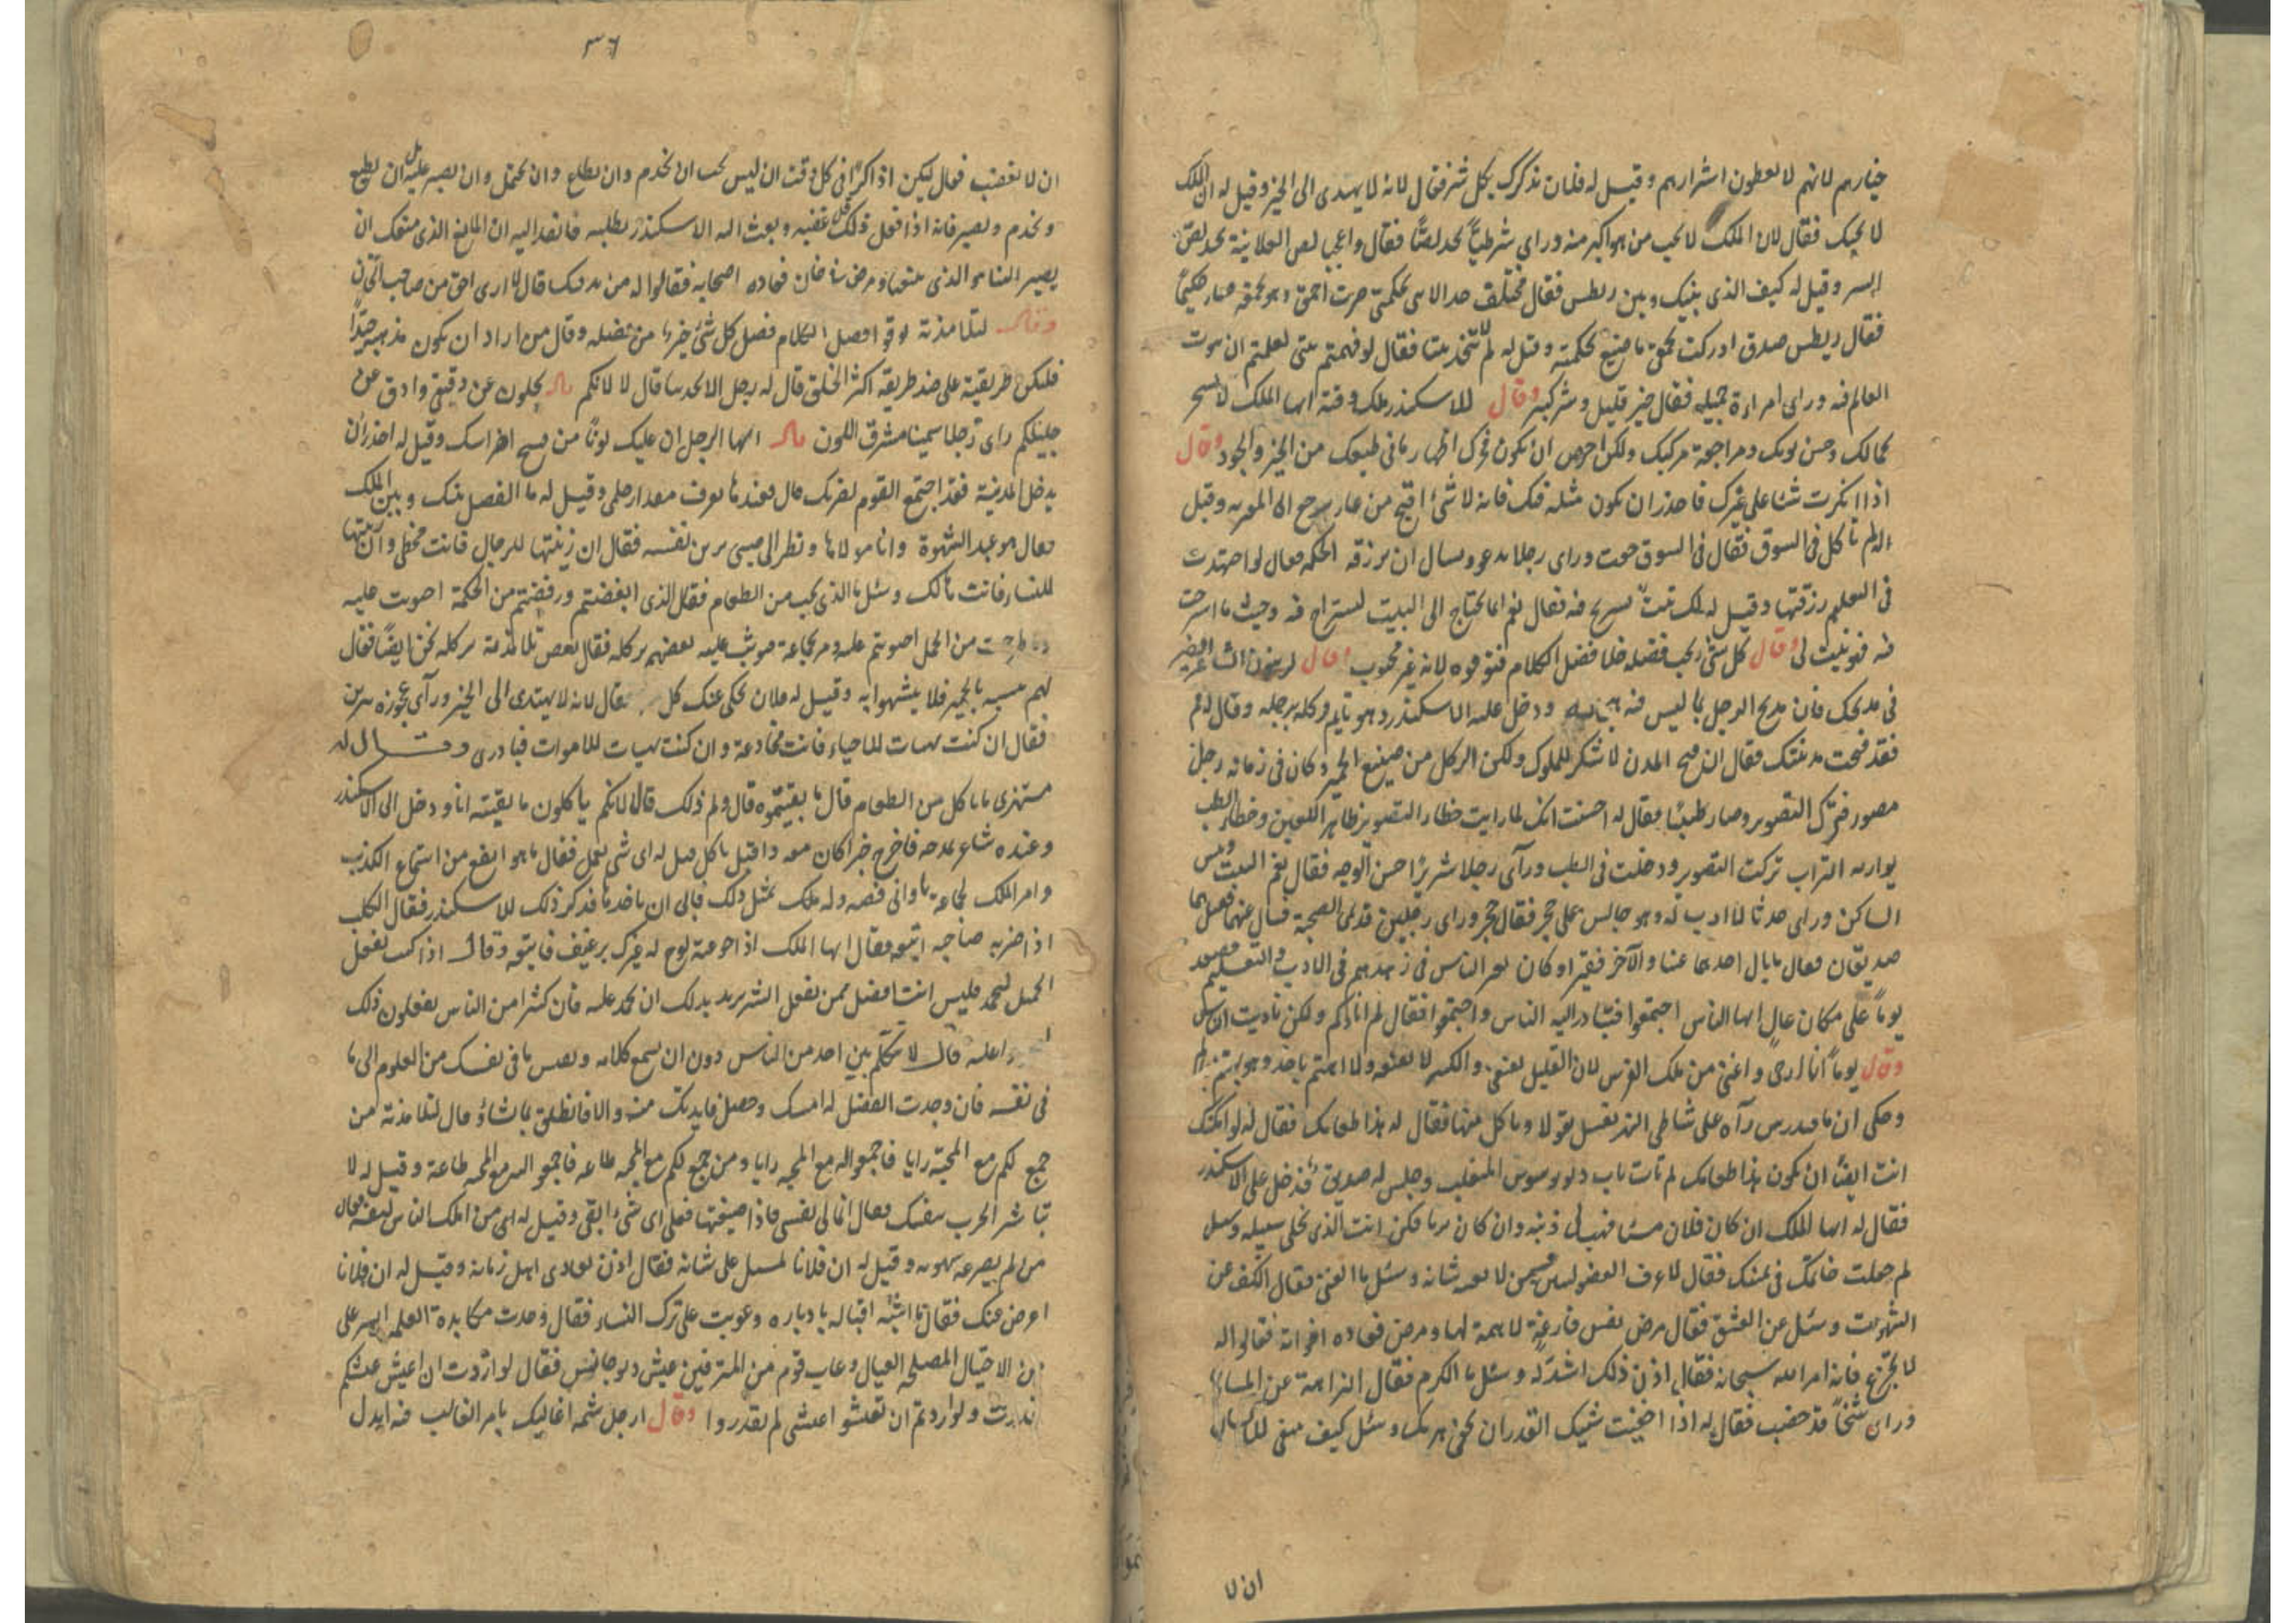 خيارهم لانهم لا يعطون اشرارهم وقيل له فلان يذكرك بكل شر فقال لانه لا يهتدى الى الخير وقيل له ان الملك
لا يحبك فقال لان الملك لا يحب من هو اكبر منه وراى شرطيا يحد لصا فقال واعجبا لص العلانية يحد لص
السر وقيل له كيف الذى بينك وبين ريطس فقال مختلف حدا لانى بحكمتى صرت احمق وهو بحمقه صار حكيما
فقال ريطس صدق ادركت بحمقى ما ضيع بحكمته وقيل له لم لا تتخذ بيتا فقال لو فهمتم بيتى لعلمتم ان بيوت
العالم فيه وراى امراءة جميلة فقال خير قليل وشر كبير وقال للاسكندر ملك وقته ايها الملك لا تسر
بجمالك وحسن ثوبك ومراجعة مركبك ولكن احرص ان يكون فخرك اظهار ما فى طبعك من الخير والجود وقال
اذا انكرت شيئا على غيرك فاحذر ان يكون مثله فيك فانه لا شئ اقبح من عار يرجع الى المعير به وقيل
له لم تاكل فى السوق فقال فى السوق جعت وراى رجلا يدعو ويسال ان يرزقه الحكمة فقال لو اجتهدت
فى التعليم رزقتها وقيل له الك بيت تستريح فيه فقال نعم انما يحتاج الى البيت ليستراح فيه وحيث ما استرحت
فيه فهو بيت لى وقال كل شئ يحب فضله خلا فضل الكلام فتوقوه لانه غير محبوب وقال
فى مدحك فان مدح الرجل بما ليس فيه ودخل عليه الاسكندر وهو نايم وكله برجله وقال له قم
فقد فتحت مدينتك فقال ان فتح المدن لا تنكر للملوك ولكن الركل من صنيع الحمير وكان فى زمانه رجل
مصور فترك التصوير وصار طبيبا فقال له احسنت انك لما رايت خطاء التصوير ظاهر للعين وخطاء الطب
يواريه التراب تركت التصوير ودخلت فى الطب وراى رجلا شريرا حسن الوجه فقال نعم البيت وبئس
الساكن وراى حدثا لا ادب له وهو جالس على حجر فقال حجر وراى رجلين قديمى الصحبة فسال عنهما فقيل هما
صديقان فقال ما بال احدهما غنيا والآخر فقيرا وكان يعير الناس فى زهدهم فى الادب والتعليم فصعد
يوما على مكان عال ايها الناس اجتمعوا فتبادر اليه الناس واجتمعوا فقال لم انادكم ولكن ناديت الناس
وقال يوما انا اثرى واغنى من ملك الفرس لان القليل يقنعنى والكثير لا يقنعه ولا اهتم باحد وهو يهتم
وحكى ان راه على شاطى النهر يغسل بقولا وياكل منها فقال له هذا طعامك فقال له لو امكنك
انت ايضا ان يكون هذا طعامك لم تات باب المتغلب وجلس له صديق فدخل على الاسكندر
فقال له ايها الملك ان كان فلان مسيئا فهب لى ذنبه وان كان بريا فكن انت الذى تخلى سبيله وسئل
لم جعلت خاتمك فى يمينك فقال لاعرف الفضوليين ممن لا يعنيه شانه وسئل ما الغنى فقال الكف عن
الشهوات وسئل عن العشق فقال مرض نفس فارغة لا همة لها ومرض فعاده اخوانه فقالوا له
لا تجزع فانه امر الله سبحانه فقال اذن ذلك اشد له وسئل ما الكرم فقال النزاهة عن المساوى
وراى شيخا قد خضب فقال له اذا اخفيت شيبك اتقدر ان تخفى هرمك وسئل كيف ينبغى للانسان
ان لا
٣٦
ان لا يغضب فقال ليكن اذاكرا فى كل وقت ان ليس يجب ان يخدم وان يطاع وان يحتمل وان يصبر عليه بل ان يطيع
ويخدم ويصبر فانه اذا فعل ذلك قل غضبه وبعث اليه الاسكندر يطلبه فانفذ اليه ان المانع الذى منعك ان
تصير الينا هو الذى منعنا ومرض فعاده اصحابه فقالوا له من يدفنك قال لا ارى احق من صاحب الخان
وقال لتلامذته توقوا فضل الكلام فضل كل شئ خير من فضله وقال من اراد ان يكون مذهبه جيدا
فليكن طريقته على ضد طريقة اكثر الخلق قال له رجل الا تحدثنا قال لا لانكم تجلون عن دقيقى وادق عن
جليلكم راى رجلا سمينا مشرق اللون قال ايها الرجل ان عليك ثوبا من نسج اضراسك وقيل له احذر ان
يدخل المدينة فقد اجتمع القوم لضربك قال فعندها يعرف مقدار حلمى وقيل له ما الفصل بينك وبين الملك
فقال هو عبد الشهوة وانا مولاها ونظر الى صبى يزين نفسه فقال ان زينتها للرجال فانت مخطى وان زينتها
للنساء فانت هالك وسئل ما الذى يجب من الطعام فقال الذى ابغضتم ورفضتم من الحكمة احتويت عليه
من الجهل احتويتم عليه ومر بجماعة فوثب عليه بعضهم يركله فقال بعض تلامذته نركله نحن ايضا فقال
لهم بالحمير فلا تشبهوا به وقيل له فلان يحكى عنك كل فقال لانه لا يهتدى الى الخير وراى عجوزة تتزين
فقال ان كنت تهيات للاحياء فانت مخادعة وان كنت تهيات للاموات فبادرى وقال له
مستهزى ما تاكل من الطعام قال ما بقيتموه قال ولم ذلك قال لانكم تاكلون ما بقيته انا ودخل الى الاسكندر
وعنده شاعر يمدحه فاخرج خبزا كان معه واقبل ياكل قيل له اى شئ تعمل فقال ما هو انفع من استماع الكذب
وامر الملك لجماعة باوانى فضة وله بمثل ذلك فابى ان ياخذها فذكر ذلك للاسكندر فقال الكلب
اذا ضربه صاحبه اتبعه فقال ايها الملك اذا جوعته لوح له غيرك برغيف فاتبعه وقال اذا كنت تفعل
الجميل لتحمد فليس انت افضل ممن يفعل الشر يريد بذلك ان يحمد عليه فان كثيرا من الناس يفعلون ذلك
قال لا تتكلم بين احد من الناس دون ان تسمع كلامه وتقيس ما فى نفسك من العلوم الى ما
فى نفسه فان وجدت الفضل له امسك وحصل فايدتك منه والا فانطلق بما شاء قال لتلامذته من
جمع لكم مع المحبة رايا فاجمعوا له مع المحبة رايا ومن جمع لكم مع المحبة طاعة فاجمعوا له مع المحبة طاعة وقيل له لا
تباشر الحرب بنفسك فقال انما لى نفسى فاذا ضيعتها فعلى اى شئ ابقى وقيل له اى من املك الناس لنفسه فقال
من لم يصرعه شهوته وقيل له ان فلانا على شانه فقال اذن يعادى اهل زمانه وقيل له ان فلانا
اعرض عنك فقال ما اشبه اقباله بادباره وعوتب على ترك النساء فقال وجدت مكابدة الغلمة ايسر على
من الاحتيال لمصلحة العيال وعاب قوم من المترفين عيش ديوجانس فقال لو اردت ان اعيش عيشكم
قدرت ولو اردتم ان تعيشوا عيشى لم تقدروا وقال لرجل شتمه اغالبك بامر الغالب فيه ارذل